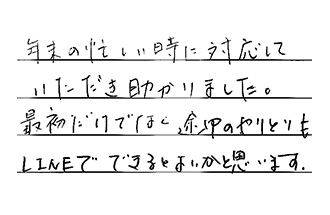 年末の忙しい時に対応して
いただき助かりました。
最初だけではなく、途中のやりとりも
LINEでできるとよいかと思います。